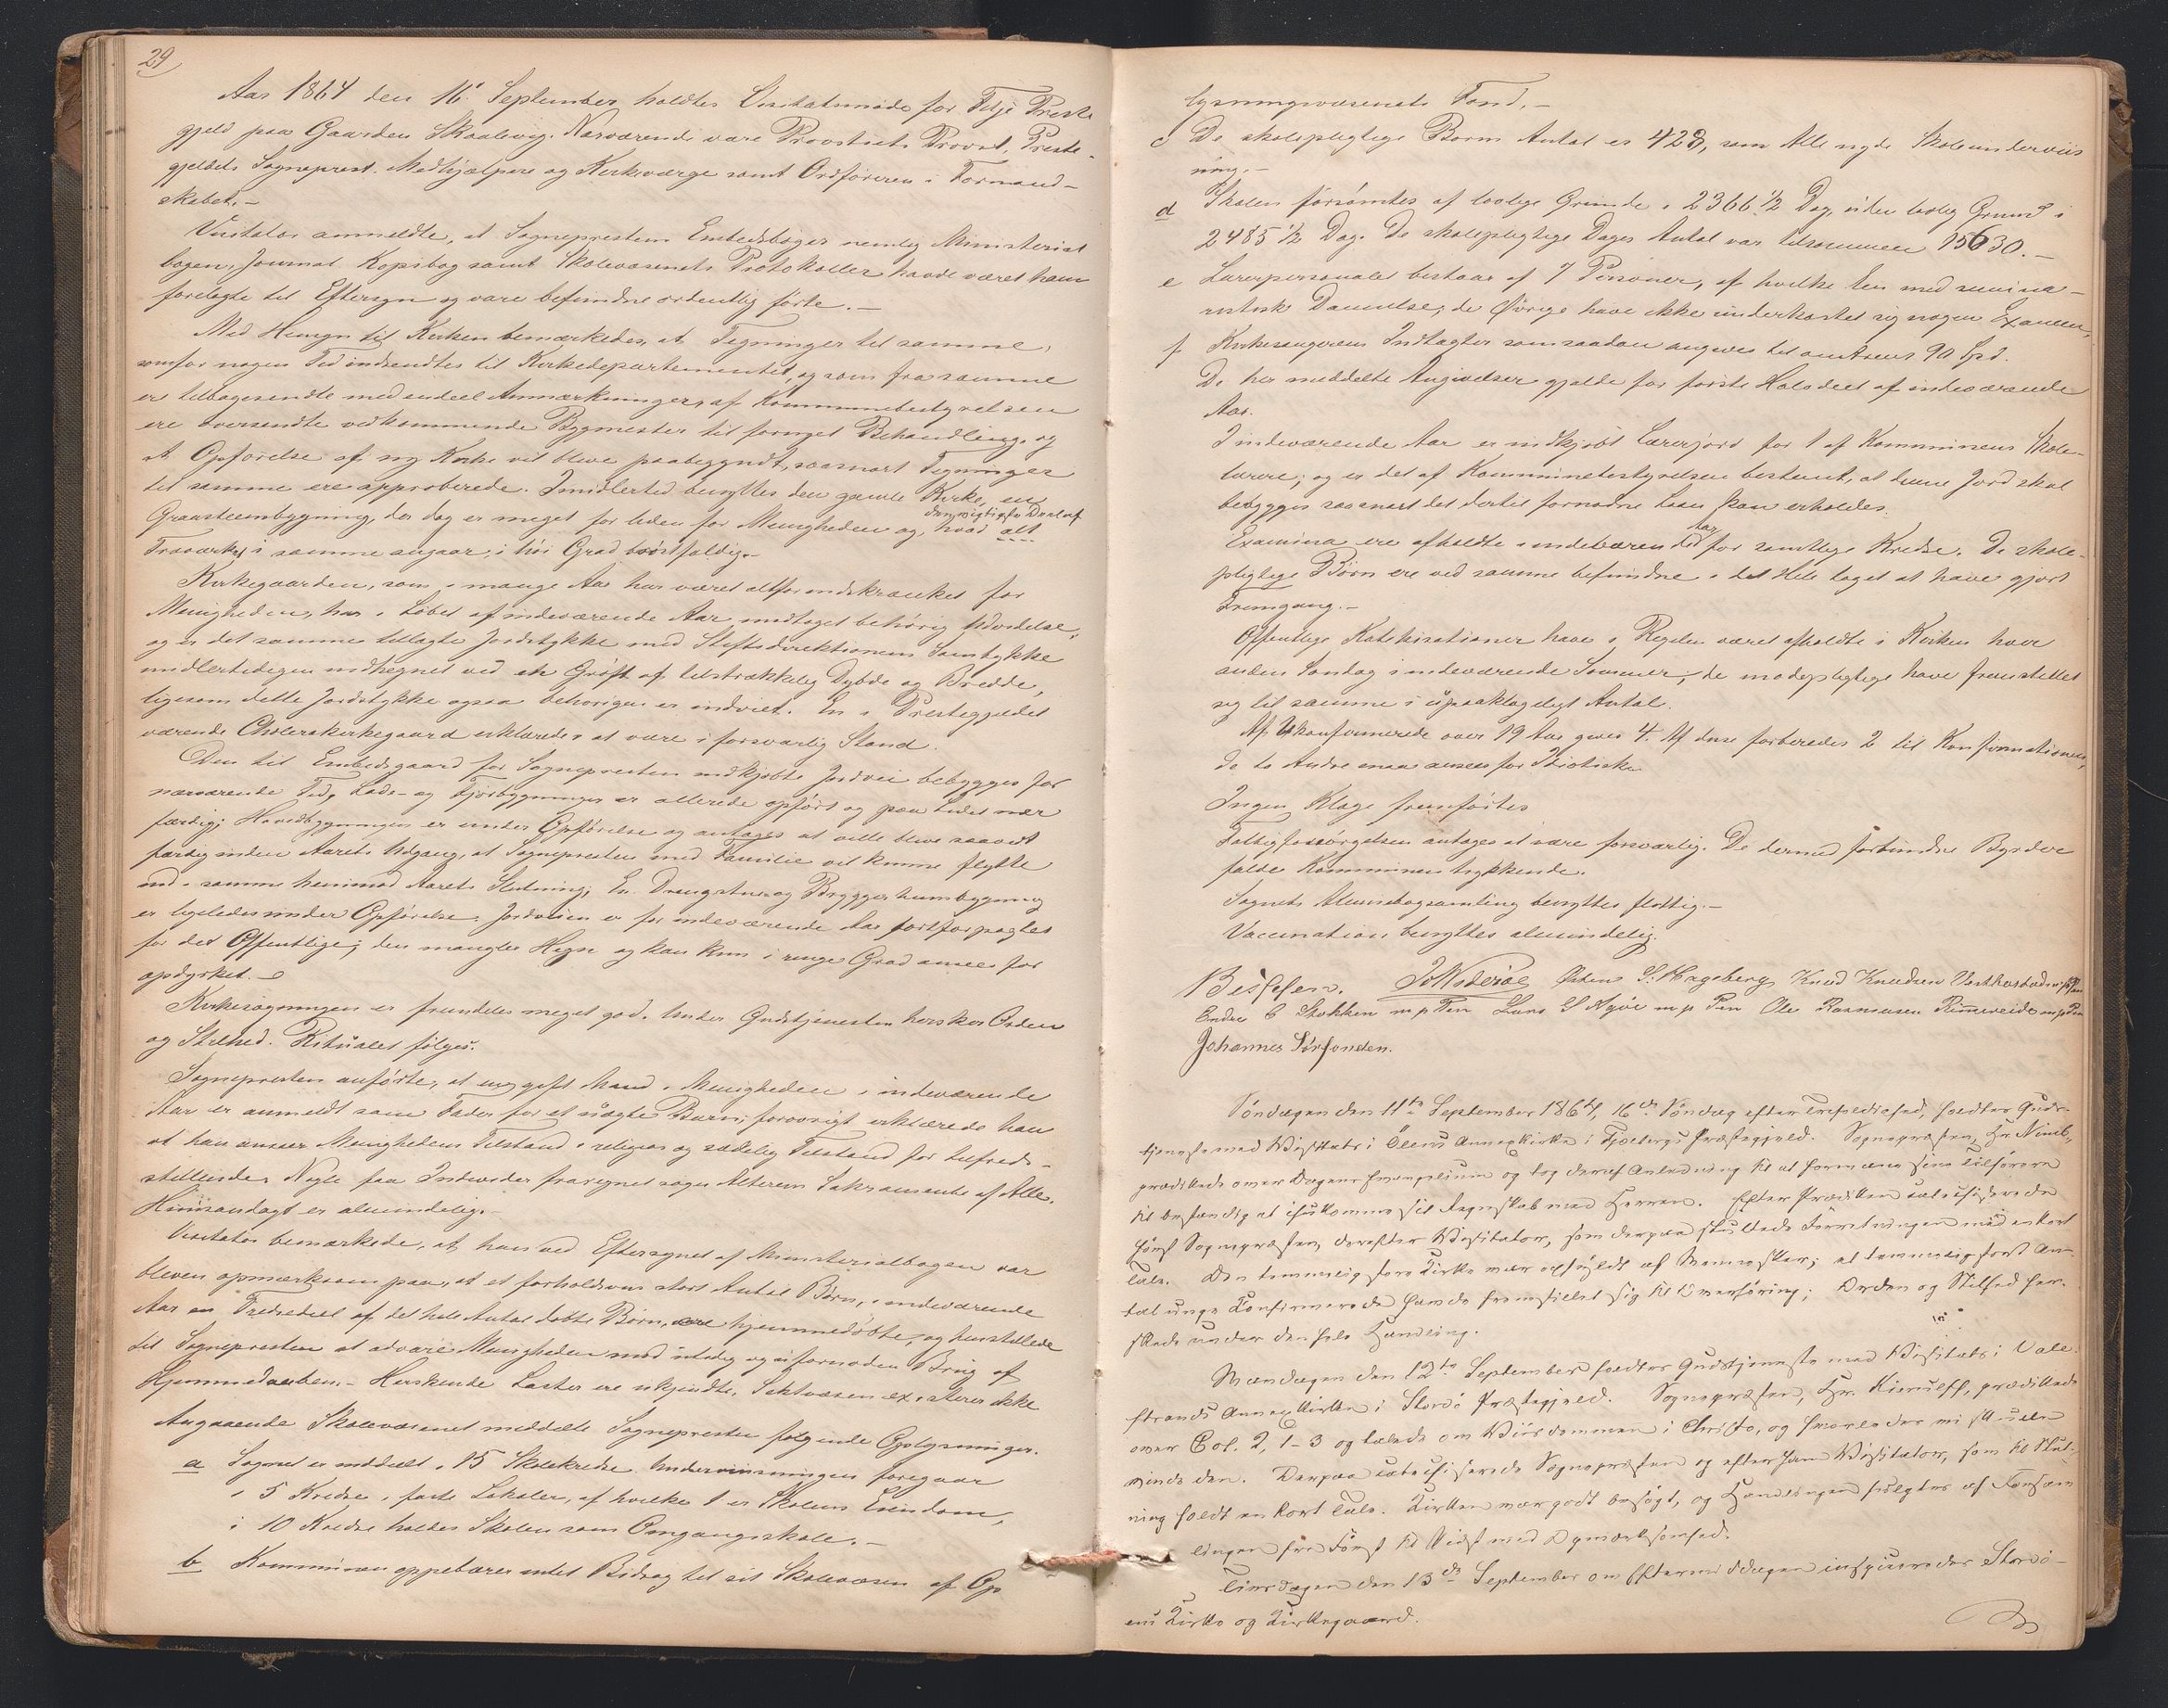 29
Aar 1864 den 16 September holdtes Visitatsmøde for Fitje Præste
gjeld paa Gaarden Skaalevig. Nærværende vare Provstiets Provst, Præste-
gjeldets Sognepræst, Medhjælpere og Kirkeværge samt Ordføreren i Formand-
skabet.-
Visitator anmeldte, at Sogneprestens Embedsbøger nemlig Ministerial
bogen, Journal, Kopibog samt Skolevæsenets Protokoller havde været ham
forelagte til Eftersyn og vare befundne ordentlig førte.-
Med Hensyn til Kirken bemærkedes, at Tegninger til samme,
som for nogen Tid indsendtes til Kirkedepartementet, og som fra samme
er tilbagesendte med endeel Anmærkninger, af Kommunebestyrelsen
ere oversendte vedkommende Bygmester til fornyet Behandling, og
at Opførelse af ny Kirke vil blive paabegyndt, saasnart Tegninger
til samme ere approberede. Imidlertid benyttes den gamle Kirke, en
Graasteensbygning, der dog er meget for liden for Menigheden og, hvad alt
den vigtigste Deel af
Træværket i samme angaar, i høi Grad brøstfældig.-
Kirkegaarden, som i mange Aar har været altfor indskrænket for
Menigheden, har i Løbet af indeværende Aar modtaget behørig Udvidelse,
og er det samme tillagte Jordstykke med Stiftsdirektionens Samtykke
midlertidigen indhegnet ved en Grøft af tilstrækkelig Dybde og Bredde,
ligesom dette Jordstykke ogsaa behørigen er indviet. En i Prestegjeldet
værende Cholerakirkegaard erklæredes at være i forsvarlig Stand.
Den til Embedsgaard for Sognepresten indkjøbte Jordvei bebygges for
nærværende Tid, Lade- og Fjøsbygninger er allerede opført og paa Lidet nær
færdig; Hovedbygningen er under Opførelse og antages at ville blive saavidt
færdig inden Aarets Udgang, at Sognepresten med Familie vil kunne flytte
ind i samme henimod Aarets Slutning; En Drengstue og Bryggerhuusbygning
er ligeledes under Opførelse. Jordveien er for indeværende Aar bortforpagtet
for det Offentlige; den mangler Hegn og kan kun i ringe Grad ansees for
opdyrket.-
Kirkesøgningen er fremdeles meget god. Under Gudstjenesten hersker Orden
og Stilhed. Ritualet følges.
Sognepresten anførte, at ung gift Mand i Menigheden i indeværende
Aar er anmeldt som Fader for et uægte Barn; forøvrigt erklærede han
at han anseer Menighedens Tilstand i religiøs og sædelig Tilstand for tilfreds-
stillende. Nogle faa Individer fraregnet søges Alterens Sakramente af Alle.
Huusandagt er almindelig.-
Visitator bemærkede, at han ved Eftersynet af Ministerialbogen var
bleven opmærksom paa, at et forholdsvis stort Antal Børn, i indeværende
Aar en Trediedeel af det hele Antal døbte Børn, ere hjemmedøbte, og henstillede
til Sognepresten at advare Menigheden mod utidig og ufornøden Brug af
Hjemmedaaben.- Herskende Laster ere ukjendte. Sektvæsen existerer ikke
Angaaende Skolevæsenet meddelte Sognepresten følgende Oplysninger.
a Sognet er inddeelt i 15 Skolekredse. Underviisningen foregaar
i 5 Kredse i faste Lokaler, af hvilke 1 er Skolens Eiendom,
i 10 Kredse holdes Skolen som Omgangsskole.-
b Kommunen oppebærer intet Bidrag til sit Skolevæsen af Op
lysningsvæsenets Fond.-
c De skolepligtige Børns Antal er 428, som Alle nyde Skoleunderviis
ning.-
d Skolen forsømtes af lovlige Grunde i 2366 1/2 Dag, uden lovlig Grund i
2485 1/2 Dag. De skolepligtige Dages Antal var tilsammen 15630.-
e Lærerpersonalet bestaar af 7 Personer, af hvilke een med semina-
ristisk Dannelse; de Øvrige have ikke underkastet sig nogen Examen,
f Kirkesangerens Indtægter som saadan angives til omtrent 90 Spd.
De her meddelte Angivelser gjelde for første Halvdeel af indeværende
Aar.
I indeværende Aar er indkjøbt Lærerjord for 1 af Kommunens Skole-
lærere; og er det af Kommunebestyrelsen bestemt, at denne Jord skal
bebygges saasnart det dertil fornødne Laan kan erholdes.
Aar
Examina ere afholdte i indeværende for samtlige Kredse. De skole-
pligtige Børn ere ved samme befundne i det Hele taget at have gjort
Fremgang.-
Offentlige Katekisationer have i Regelen været afholdte i Kirken hver
anden Søndag i indeværende Sommer; de mødepligtige have fremstillet
sig til samme i upaaklageligt Antal.
Af Ukonfirmerede over 19 Aar gives 4. Af disse forberedes 2 til Konfirmationen,
de to Andre maa ansees for Idiotiske
Ingen Klage fremførtes
Fattigforsørgelsen antages at være forsvarlig. De dermed forbundne Byrder
falde Kommunen trykkende.
Sognets Almuebogsamling benyttes flittig.-
Vaccination benyttes almindelig.
Østen S. Hageberg Knud Knudsen
Endre Stokken m p Pen Lars S Agøe m p Pen Ole Rasmusen Rimmereide m p Pen
Johannes Sørfonden.
Søndagen den 11te September 1864, 16de Søndag efter Trefoldighed, holdtes Guds-
tjeneste med Visitats i Ølens Annexkirke i Fjelbergs Præstegjeld. Sognepræsten, Hr. 
prædikede over Dagens Evangelium og tog deraf Anledning til at formane sine Tilhørere
til bestandig at ihukomme sit Regnskab med Herren. Efter Prædiken catechiserede
først Sognepræsten, derefter Visitator, som derpaa sluttede Forretningen med en kort
Tale. Den temmelig store Kirke var opfyldt af Mennesker; et temmelig stort An-
tal unge Confirmerede havde fremstillet sig til Overhøring; Orden og Stilhed her-
skede under den hele Handling.
Mandagen den 12te September holdtes Gudstjeneste med Visitats i Vale-
strands Annexkirke i Stordø Præstegjeld. Sognepræsten, Hr. Kierulff, prædikede
over Col. 2, 1-3 og talede om Viisdommen i Christo, og hvorledes vi skulle
vinde den. Derpaa catechiserede Sognepræsten og efter ham Visitator, som til Slut-
ning holdt en kort Tale. Kirken var godt besøgt, og Handlingen fulgtes af Forsam
lingen fra Først til Sidst med Opmærksomhed.
Tirsdagen den 13de September om Eftermiddagen inspiceredes Stordø-
ens Kirke og Kirkegaard.